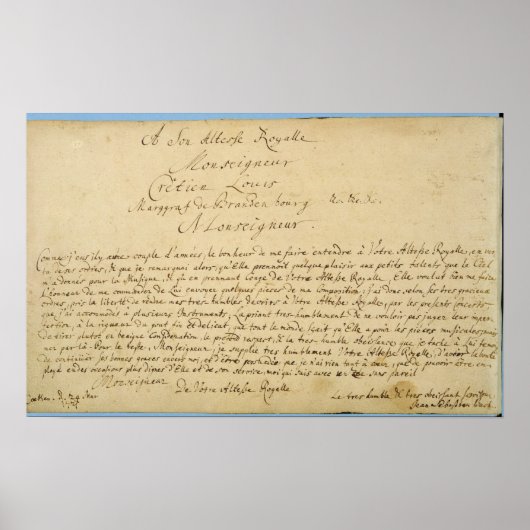 A Son Altesse Royalle
Monseigneur
Crêtien Louis
Marggraf de Brandenbourg &c. &c. &c.
Monseigneur.
Comme j'eus il y a une couple d'années, le bonheur de me faire entendre à Votre Altesse Royalle, en ver-
tu de ses ordres, & que je remarquai alors, qu'Elle prennoit quelque plaisir aux petits talents que le Ciel
m'a donnés pour la Musique, & qu'en prennant Congé de Votre Altesse Royalle, Elle voulut bien me faire
l'honneur de me commander de Lui envoyer quelques pieces de ma Composition; j'ai donc selon ses tres gracieux
ordres, pris la liberté de rendre mes tres-humbles devoirs à Votre Altesse Royalle, par les presents Concerts,
que j'ai accommodés à plusieurs Instruments; La priant tres-humblement de ne vouloir pas juger leur imper-
fection, à la rigueur du gout fin et delicat, que tout le monde sçait qu'Elle a pour les pièces musicales; mais
de tirer plutot en benigne Consideration, le profond respect, & la tres-humble obeissance que je tache à Lui temoi-
gner par là. Pour le reste, Monseigneur, je supplie tres humblement Votre Altesse Royalle, d'avoir la bonté
de continuer ses bonnes graces envers moi, et d'être persuadée que je n'ai rien tant à cœur, que de pouvoir être em-
ployé en des occasions plus dignes d'Elle et de son service, moi qui suis avec un zele sans pareil
Monseigneur
De Votre Altesse Royalle
Coethen. d. 24 Mar
Le tres humble & tres obeissant serviteur
Jean Sebastien Bach.